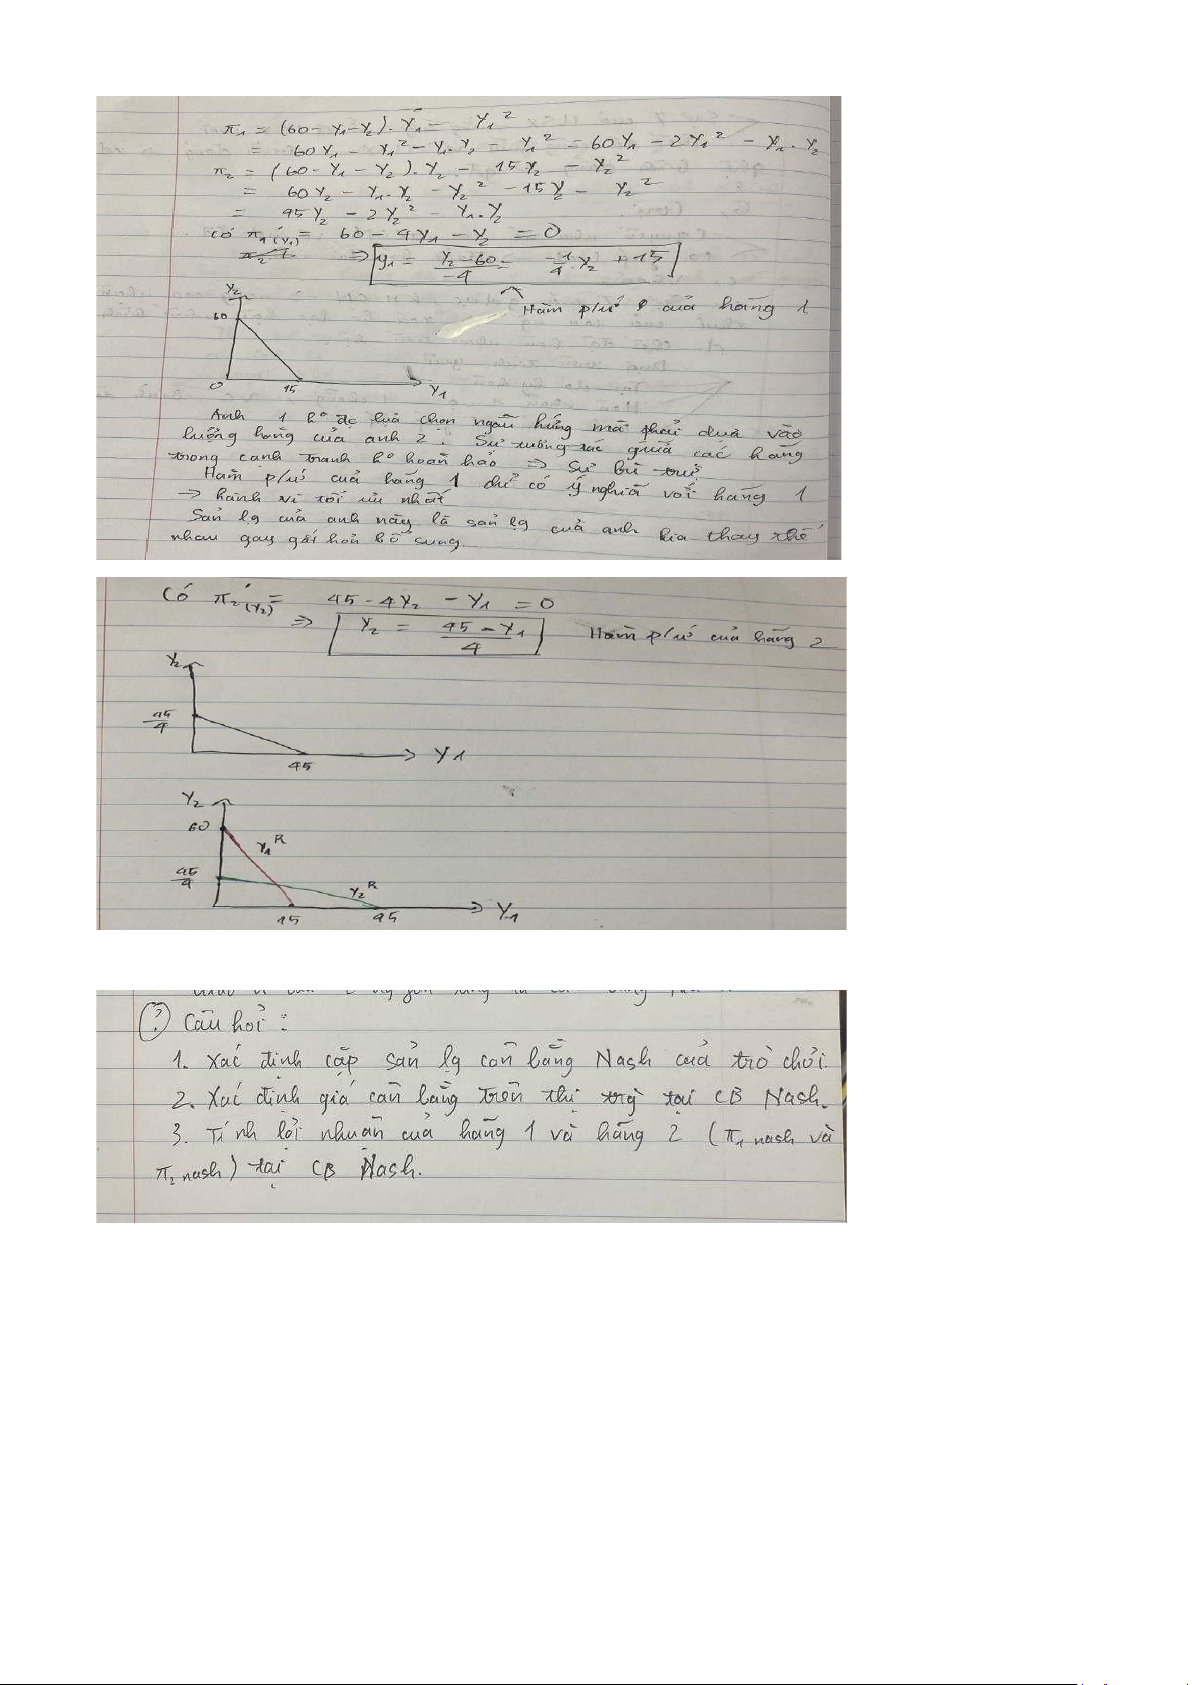 π1 = (60 - Y1 - Y2) . Y1 - Y1²
= 60Y1 - Y1² - Y1.Y2 - Y1² = 60Y1 - 2Y1² - Y1.Y2
π2 = (60 - Y1 - Y2) . Y2 - 15Y2 - Y2²
= 60Y2 - Y1.Y2 - Y2² - 15Y2 - Y2²
= 45Y2 - 2Y2² - Y1.Y2
Có π1'(Y1) = 60 - 4Y1 - Y2 = 0
⇒ y1 = Y2-60/-4 = -1/4 Y2 + 15
Hàm p/ứ của hãng 1
Y2
60
0 15 Y1
Anh 1 k° đc lựa chọn ngẫu hứng mà phải dựa vào
lượng hàng của anh 2 : Sự tương tác giữa các hãng
trong cạnh tranh k° hoàn hảo ⇒ Sự bù trừ
Hàm p/ứ của hãng 1 chỉ có ý nghĩa với hãng 1
→ hành vi tối ưu nhất
Sản lg của anh này là sản lg của anh kia thay thế
nhau gay gắt hơn bổ sung.
Có π2'(Y2) = 45 - 4Y2 - Y1 = 0
⇒ Y2 = 45 - Y1/4 Hàm p/ứ của hãng 2
Y2
45/4
45 Y1
Y2
60
Y1^R
45/4
Y2^R
15 45 Y1
? Câu hỏi :
1. Xác định cặp sản lg cân bằng Nash của trò chơi.
2. Xác định giá cân bằng trên thị trg tại CB Nash.
3. Tính lợi nhuận của hãng 1 và hãng 2 (π1 nash và
π2 nash) tại CB Nash.